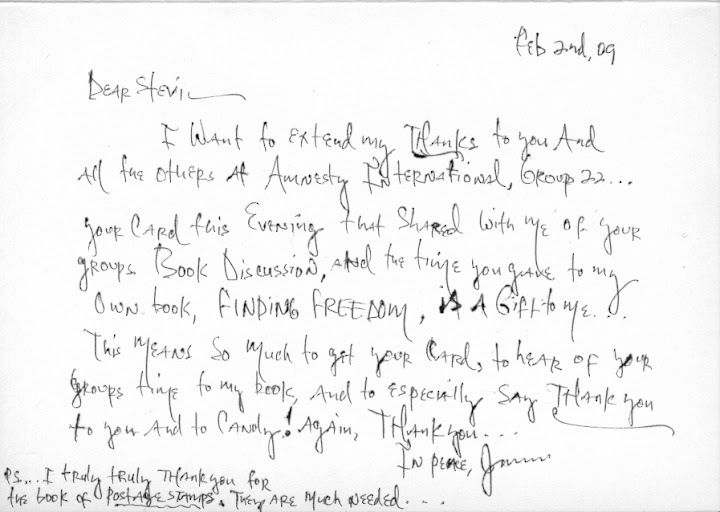 Feb 2nd, 09
Dear Stevi
I want to extend my Thanks to you And
All the others At Amnesty International, Group 22...
your Card this Evening that Shared with me of your
groups Book Discussion, and the time you gave to my
Own book, FINDING FREEDOM, is A Gift to me...
This Means So Much to get your Card, to hear of your
groups time to my book, And to especially Say Thank you
to you And to Candy! Again, Thank you...
In peace,
P.S... I truly truly Thank you for
the book of Postage Stamps. They Are Much Needed...